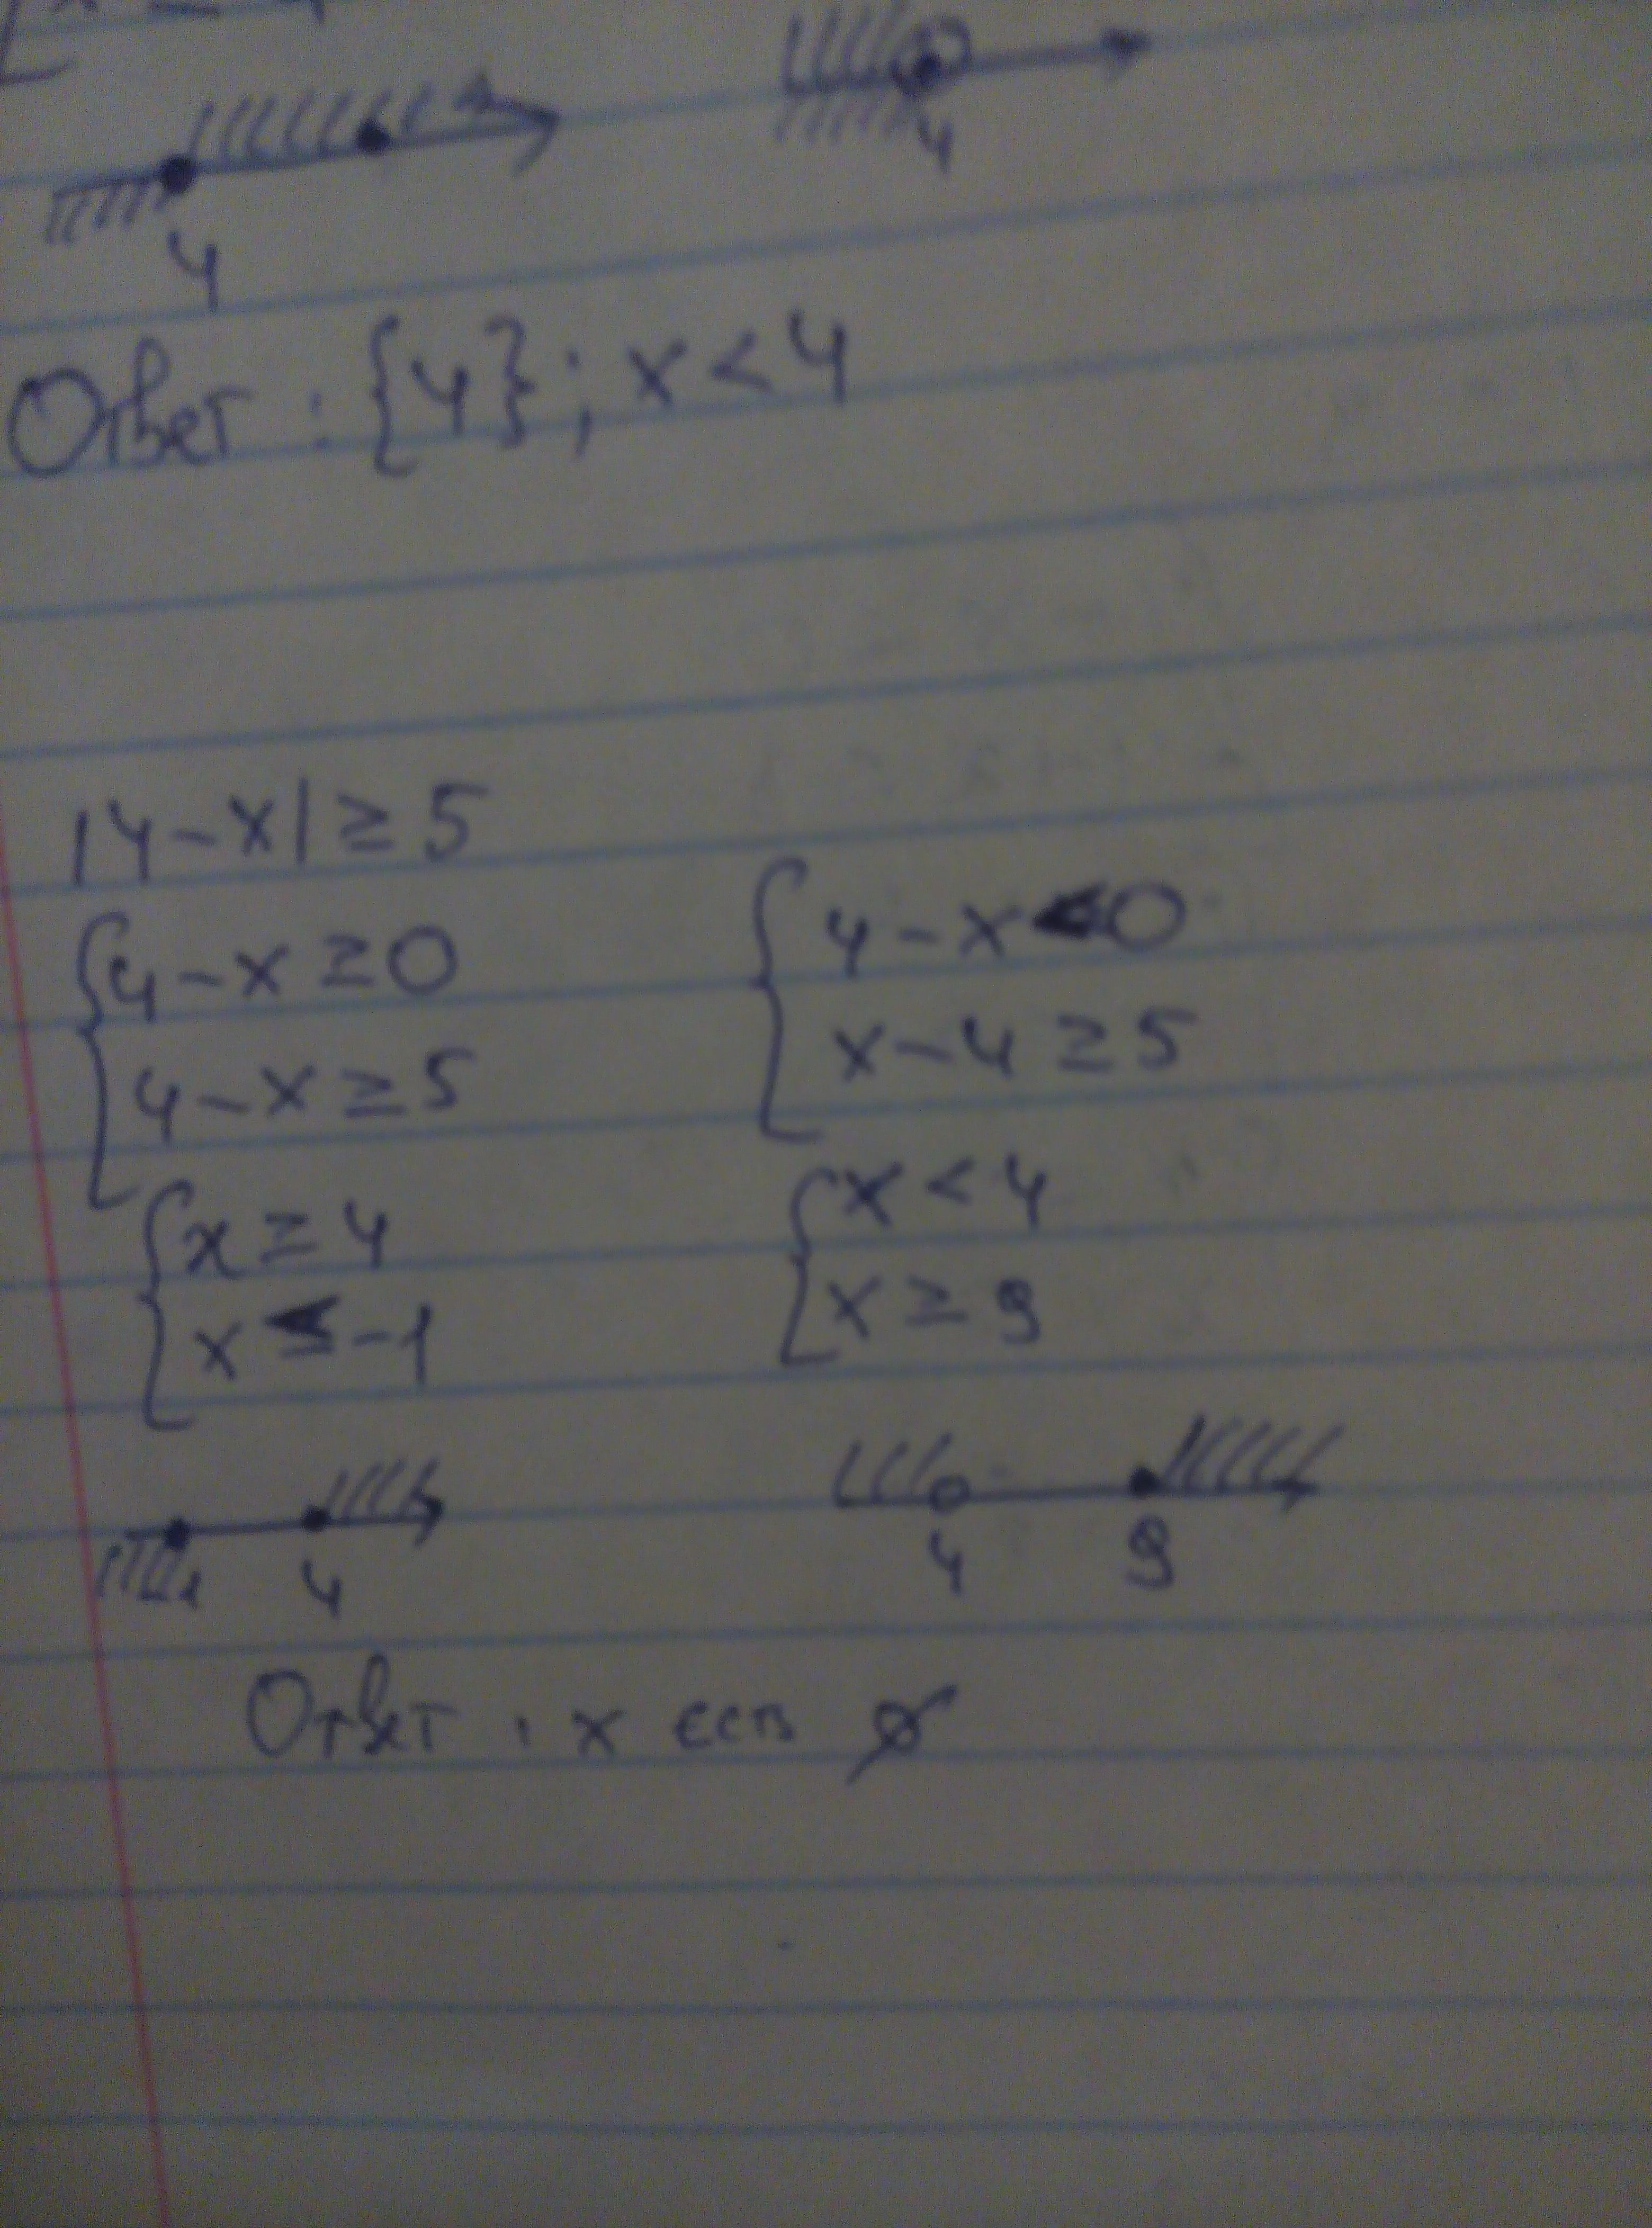 4
4
Ответ : {4} ; x < 4
|4 - x| ≥ 5
{ 4 - x ≥ 0
4 - x ≥ 5
{ 4 - x < 0
x - 4 ≥ 5
{ x ≥ 4
x ≤ -1
{ x < 4
x ≥ 9
4
4 9
Ответ : x есть ∅